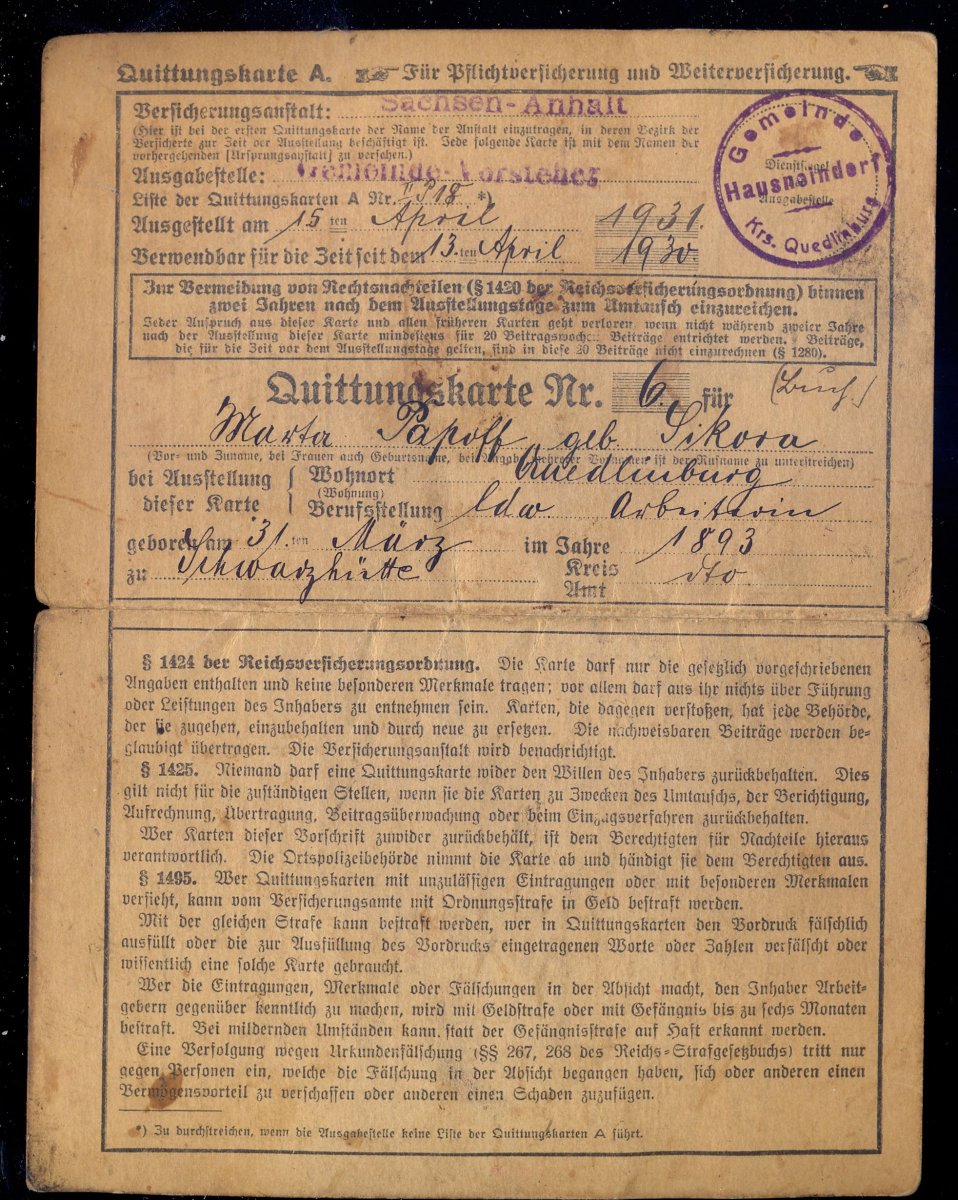 Quittungskarte A. Für Pflichtversicherung und Weiterversicherung.
Versicherungsanstalt: Sachsen-Anhalt
(Hier ist bei der ersten Quittungskarte der Name der Anstalt einzutragen, in deren Bezirk der
Versicherte zur Zeit der Ausstellung beschäftigt ist. Jede folgende Karte ist mit dem Namen der
vorhergehenden [Ursprungsanstalt] zu versehen.)
Ausgabestelle: Gemeinde-Vorsteher
Gemeinde
Hausneindorf
Krs. Quedlinburg
Dienstsiegel
Ausgabestelle
Liste der Quittungskarten A Nr. *)
Ausgestellt am 15 ten April 1931.
Verwendbar für die Zeit seit dem 13. ten April 1930
Zur Vermeidung von Rechtsnachteilen (§ 1420 der Reichsversicherungsordnung) binnen
zwei Jahren nach dem Ausstellungstage zum Umtausch einzureichen.
Jeder Anspruch aus dieser Karte und allen früheren Karten geht verloren, wenn nicht während zweier Jahre
nach der Ausstellung dieser Karte mindestens für 20 Beitragswochen Beiträge entrichtet werden. Beiträge,
die für die Zeit vor dem Ausstellungstage gelten, sind in diese 20 Beiträge nicht einzurechnen (§ 1280).
Quittungskarte Nr. 6. für (Buch.)
Marta Papoff geb. Sikora
(Vor- und Zuname, bei Frauen auch Geburtsname, bei Angabe mehrerer Vornamen ist der Rufname zu unterstreichen)
bei Ausstellung dieser Karte
Wohnort Quedlinburg
(Wohnung)
Berufsstellung ldw. Arbeiterin
geboren am 31. ten März im Jahre 1893
zu Schwarzhütte Kreis Amt dto
§ 1424 der Reichsversicherungsordnung. Die Karte darf nur die gesetzlich vorgeschriebenen
Angaben enthalten und keine besonderen Merkmale tragen; vor allem darf aus ihr nichts über Führung
oder Leistungen des Inhabers zu entnehmen sein. Karten, die dagegen verstoßen, hat jede Behörde,
der sie zugehen, einzubehalten und durch neue zu ersetzen. Die nachweisbaren Beiträge werden be-
glaubigt übertragen. Die Versicherungsanstalt wird benachrichtigt.
§ 1425. Niemand darf eine Quittungskarte wider den Willen des Inhabers zurückbehalten. Dies
gilt nicht für die zuständigen Stellen, wenn sie die Karten zu Zwecken des Umtauschs, der Berichtigung,
Aufrechnung, Übertragung, Beitragsüberwachung oder beim Einzugsverfahren zurückbehalten.
Wer Karten dieser Vorschrift zuwider zurückbehält, ist dem Berechtigten für Nachteile hieraus
verantwortlich. Die Ortspolizeibehörde nimmt die Karte ab und händigt sie dem Berechtigten aus.
§ 1495. Wer Quittungskarten mit unzulässigen Eintragungen oder mit besonderen Merkmalen
versieht, kann vom Versicherungsamte mit Ordnungsstrafe in Geld bestraft werden.
Mit der gleichen Strafe kann bestraft werden, wer in Quittungskarten den Vordruck fälschlich
ausfüllt oder die zur Ausfüllung des Vordrucks eingetragenen Worte oder Zahlen verfälscht oder
wissentlich eine solche Karte gebraucht.
Wer die Eintragungen, Merkmale oder Fälschungen in der Absicht macht, den Inhaber Arbeit-
gebern gegenüber kenntlich zu machen, wird mit Geldstrafe oder mit Gefängnis bis zu sechs Monaten
bestraft. Bei mildernden Umständen kann statt der Gefängnisstrafe auf Haft erkannt werden.
Eine Verfolgung wegen Urkundenfälschung (§§ 267, 268 des Reichs-Strafgesetzbuchs) tritt nur
gegen Personen ein, welche die Fälschung in der Absicht begangen haben, sich oder anderen einen
Vermögensvorteil zu verschaffen oder anderen einen Schaden zuzufügen.
*) Zu durchstreichen, wenn die Ausgabestelle keine Liste der Quittungskarten A führt.